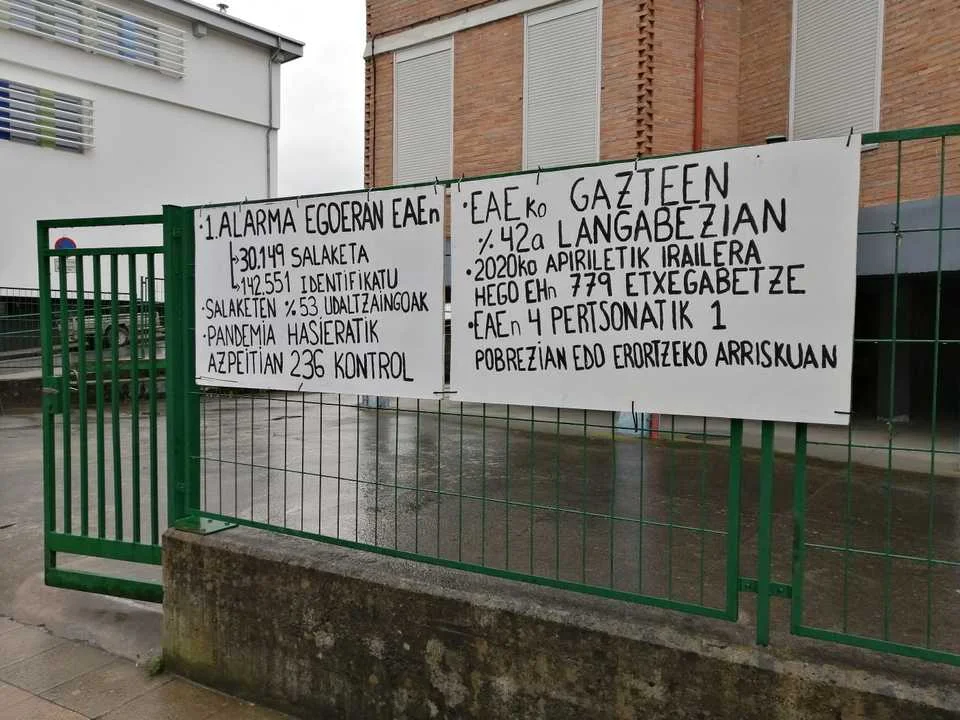 ·1. ALARMA EGOERAN EAEn
↳30.149 SALAKETA
↳142.551 IDENTIFIKATU
·SALAKETEN %53 UDALTZAINGOAK
·PANDEMIA HASIERATIK
AZPEITIAN 236 KONTROL
·EAEko GAZTEEN
%42a LANGABEZIAN
·2020ko APIRILETIK IRAILERA
HEGO EHn 779 ETXEGABETZE
·EAEn 4 PERTSONATIK 1
POBREZIAN EDO ERORTZEKO ARRISKUAN